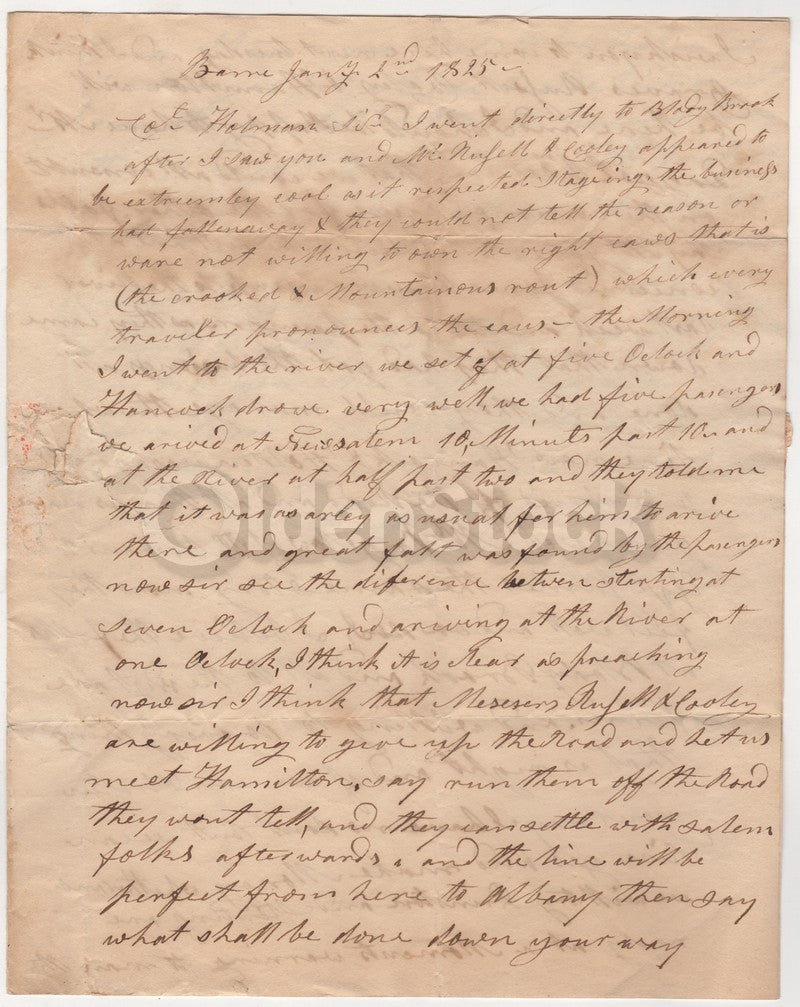 Barre Jany. 2nd 1825 -
Col. Holman Sir I went directly to Blody Brook
after I saw you and Mr. Russell & Cooley appeared to
be extriemley cool as it respected Stageing, the business
had fallen away & they could not tell the reason or
ware not willing to own the right caws that is
(the crooked & Mountainous rout) which every
traveler pronounces the caus - the Morning
I went to the river we set of at five Oclock and
Hancock drove very well, we had five pasengers
we arived at Salem 10, Minuts past 10 and
at the River at half past two and they told me
that it was as arley as usual for him to arive
there and great falt was found by the pasengers
now sir see the diference betwen starting at
seven Oclock and ariving at the River at
one Oclock, I think it is clear as preaching
now sir I think that Messers Russell & Cooley
are willing to give up the Road and let us
meet Hamilton, say run them off the Road
they wont tell, and they can settle with salem
folks afterwards, and the line will be
perfect from here to Albany then say
what shall be done down your way
OldenStock